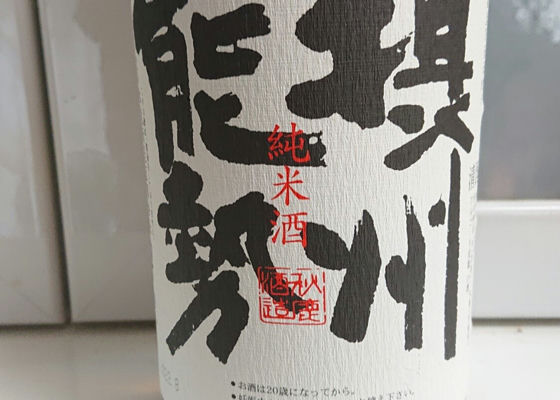 摂州
能勢
純米酒
秋鹿
酒造
●お酒は20歳になってから。